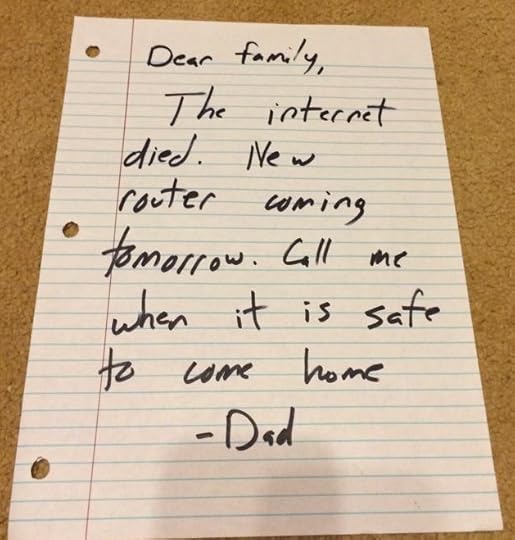 Dear family,
The internet
died. New
router coming
tomorrow. Call me
when it is safe
to come home
-Dad